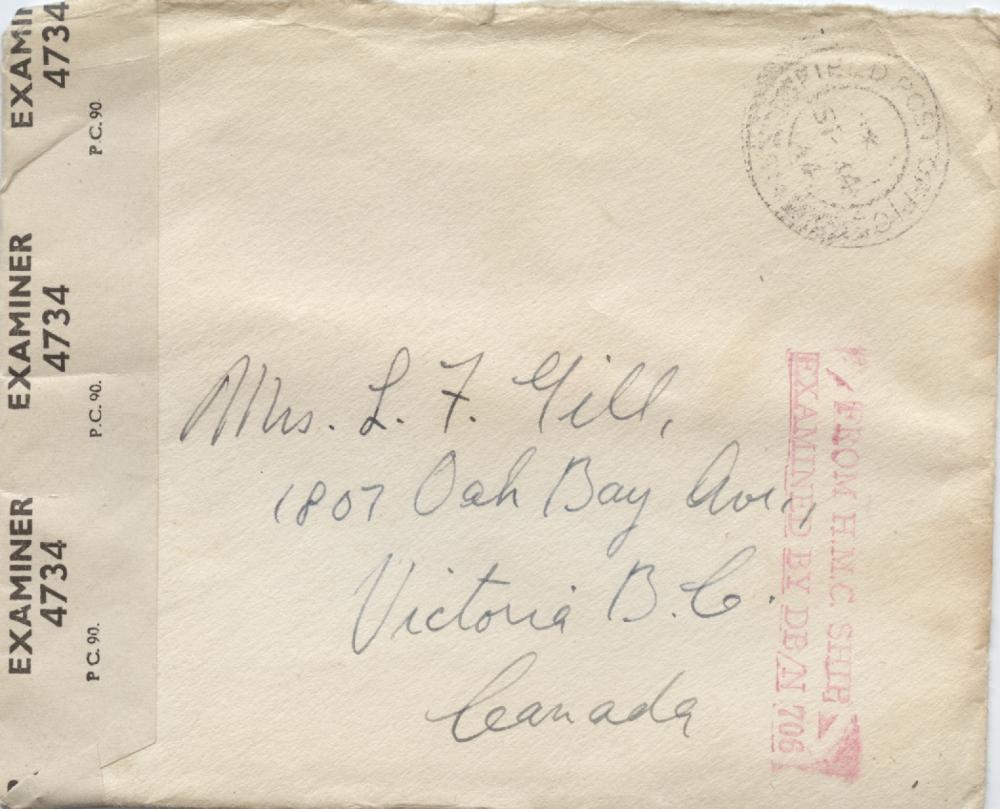 EXAMINER
4734
P.C. 90.
EXAMINER
4734
P.C. 90.
EXAMINER
4734
P.C. 90.
FIELD POST OFFICE
Mrs. L. F. Gill,
1807 Oak Bay Ave.,
Victoria B.C.
Canada
FROM H.M.C. SHIP
EXAMINED BY DB/N 706